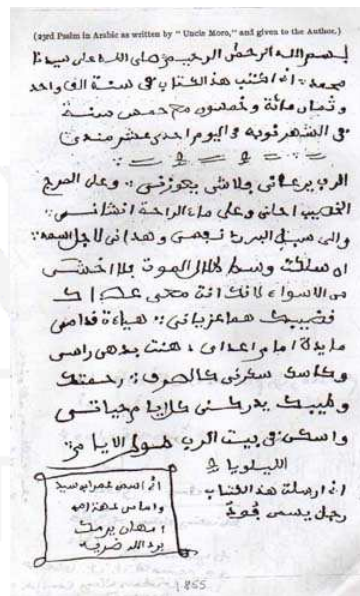 (23rd Psalm in Arabic as written by "Uncle Moro," and given to the Author.)
بسم الله الرحمن الرحيم صلى الله على سيدنا
محمد انا اكتب هذا الكتاب في سنة الف واحد
وثمان مائة وخمسون مع خمس سنة
في الشهر في اليوم احدى عشر
الرب يرعاني ولاشي يعوزني وعلى المرج
الخصيب احلني وعلى ماء الراحة
والى سبيل البر نفسي وهداني لاجل اسمه
ان سلكت وسط ظلال الموت فلا اخشى
من الاسواء لانك انت معي عصاك
هما عزياني هياءة قدامي
مايدة امام اعداى دهنت بدهن راسي
وكاسك سكرني كالصرف رحمتك
يدركني كل ايام حياتي
واسكن في بيت الرب طول الايام
الليلويا
انا ارسلة هذا الكتاب
رجل يسمى
انا اسمي عمر ابن سيد
واما من امه
ام هان يرمك
1855